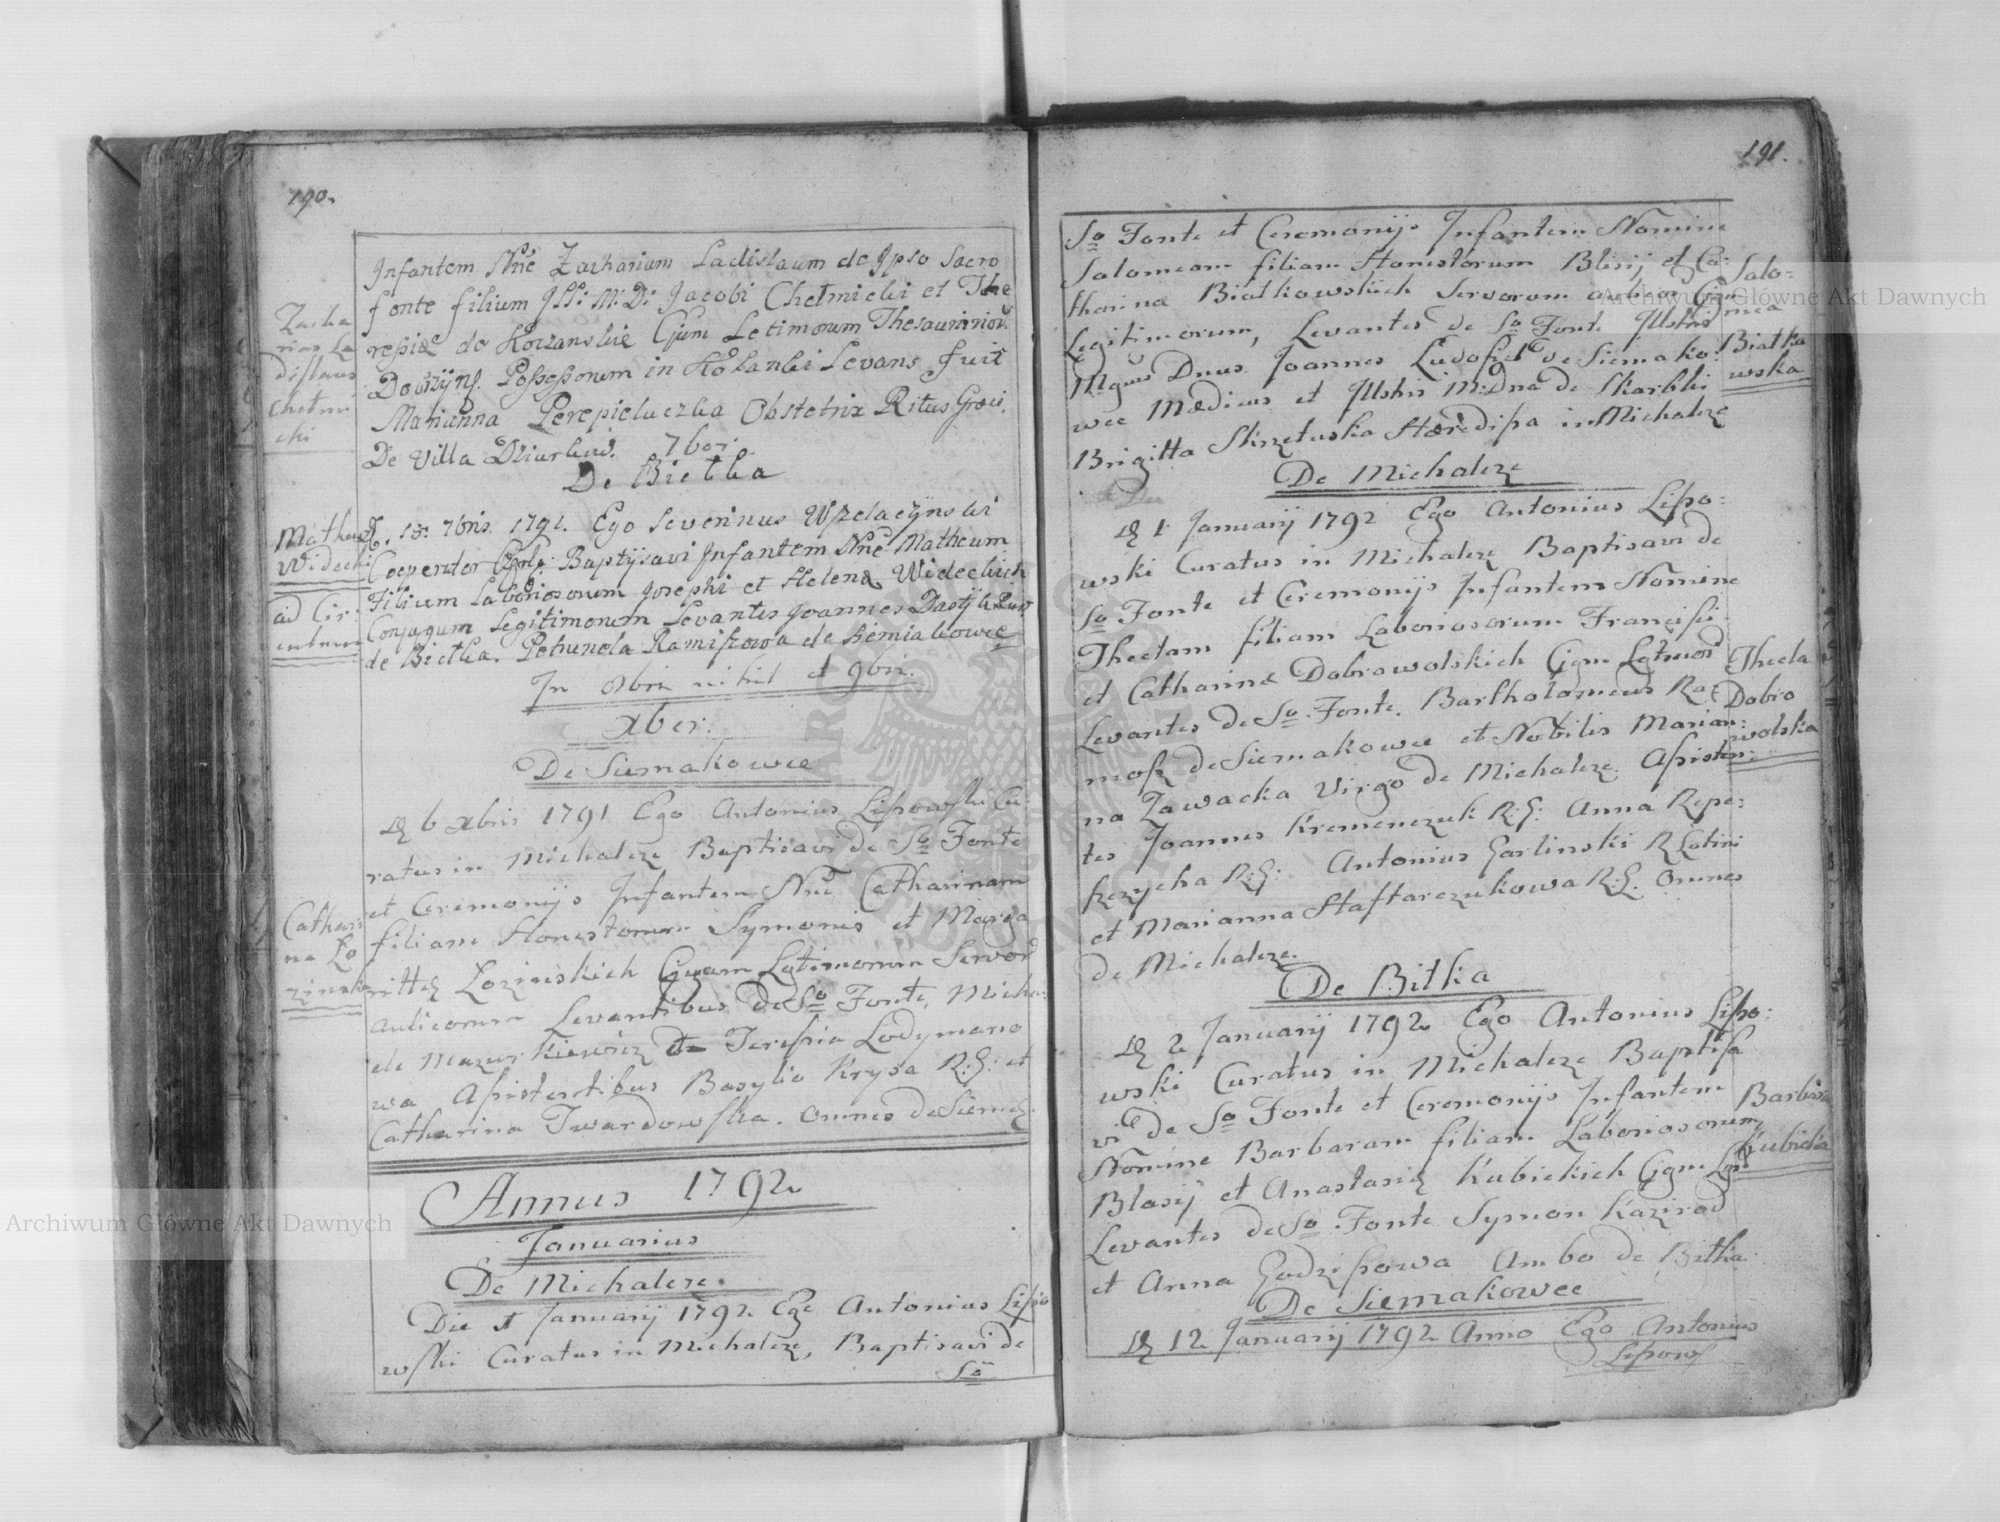 190.
Infantem Nñe Zachariam Ladislaum de Ipso Sacro
fonte filium Illi: M: Di Jacobi Chełmicki et The
resiæ de Korzanskie Cjum Letimorum Thesauririor:
Dobrzÿns. Possessorum in Kołanki Levans fuit
Marianna Perepieluczka Obstetrix Ritus Græci.
De Villa Dziurków. 7bor.
Zacha
rias La
dislaus
Chełmi
cki
De Bietka
D. 18. 7bris. 1791. Ego Severinus Wzdaczÿnski
Cooperator Baptÿsavi Infantem Nñe Matheum
Filium Laboriosorum Josephi et Helenæ Wideckich
Conjugum Legitimorum Levantes Joannes
de Bietka. Petrunela Ramiszowa de Siemiakowce
Matheus
Widecki
ad Cir-
culum
In 8bri nihil et 9bri.
Xber.
De Siemakowce
D. 6 Xbris 1791 Ego Antonius Lipowski Cu-
ratus in Michalcze Baptisavi de So Fonte
et Ceremonijs Infantem Nñe Catharinam
filiam Honestorum Symonis et Marga
rittę Łozinskich Cjgum Lgtimorum Servor
aulicorum Levantibus de So Fonte, Micha-
ele Mazurkiewicz et Teressia Łodymano
wa Assistentibus Basylio Krysa R: G: et
Catharina Twardowska. omnes de Siemę.
Cathari
na Ło
zinska
Annus 1792
Januarius
De Michalcze.
Die 1 Januarij 1792 Ego Antonius Lipo
wski Curatus in Michalcze, Baptisavi de
So
191.
So Fonte et Ceremonijs Infantem Nomine
Salomeam filiam Honestorum Blasij et Ca-
tharinæ Białkowskich Servorum Cjgm
Legitimorum, Levantes de So Fonte Illstris
Mgnus Dnus Joannes de Siemako-
wce Medicus et Illstris M: Dna de Skarbki
Brigitta Skrzetuska Hæredissa in Michalcze
Salo-
mea
Białko
wska
De Michalcze
D. 1 Januarij 1792 Ego Antonius Lipo-
wski Curatus in Michalcze Baptisavi de
So Fonte et Ceremonijs Infantem Nomine
Theclam filiam Laboriosorum Francisci
et Catharinæ Dobrowolskich Cjgm Lgtmor
Levantes de So Fonte. Bartholomeus Ra-
mosz de Siemakowce et Nobilis Marian-
na Zawacka Virgo de Michalcze. Assisten-
tes Joannes Kremenczuk R: G: Anna Repe-
szczycha R: G: Antonius Garlinski R Latini
et Marianna Staftarczukowa R: G. omnes
de Michalcze.
Thecla
Dobro
wolska
De Bitka
D. 2 Januarij 1792 Ego Antonius Lipo-
wski Curatus in Michalcze Baptisa
vi de So Fonte et Ceremonijs Infantem
Nomine Barbaram filiam Laboriosorum
Blasij et Anastasię Kubickich Cjgm
Levantes de So Fonte Symon Kazirod
et Anna Godziszowa Ambo de Bitka.
Barbara
Kubicka
De Siemakowce
D. 12 Januarij 1792 Anno Ego Antonius
Lipows
Archiwum Główne Akt Dawnych
Archiwum Główne Akt Dawnych